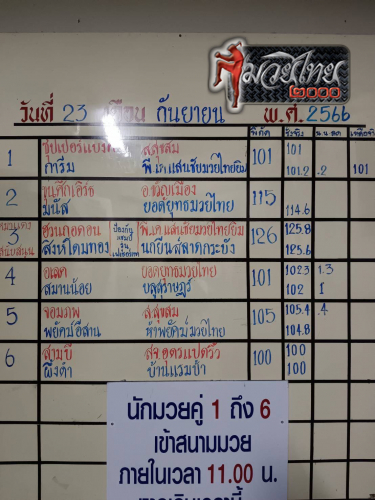 มวยไทย
๒๐๐๐
วันที่ 23 เดือน กันยายน พ.ศ. 2566
พิกัด
1 ส.สุขสม 101 101
การีม พี.เค.แสนชัยมวยไทยยิม 101.2 .2 101
2 ขุนศึกเอิร์ธ อ.ขวัญเมือง 115
มนัส ยอดยุทธมวยไทย 114.6
3 พี.เค.แสนชัยมวยไทยยิม 126 125.8
สิงห์โดมทอง นกยีนส์ลาดกระบัง 125.6
4 อเลค ยอดยุทธมวยไทย 101 102.3 1.3
สมานน้อย บลูสราษฎร์ 102 1
5 จอมภพ ส.สุขสม 105 105.4 .4
พยัคฆ์อีสาน ห้าพยัคฆ์มวยไทย 104.8
6 สามบี สจ.อุดรแปดริ้ว 100 100
ผึ้งดำ บ้านแรมป่า 100
นักมวยคู่ 1 ถึง 6
เข้าสนามมวย
ภายในเวลา 11.00 น.